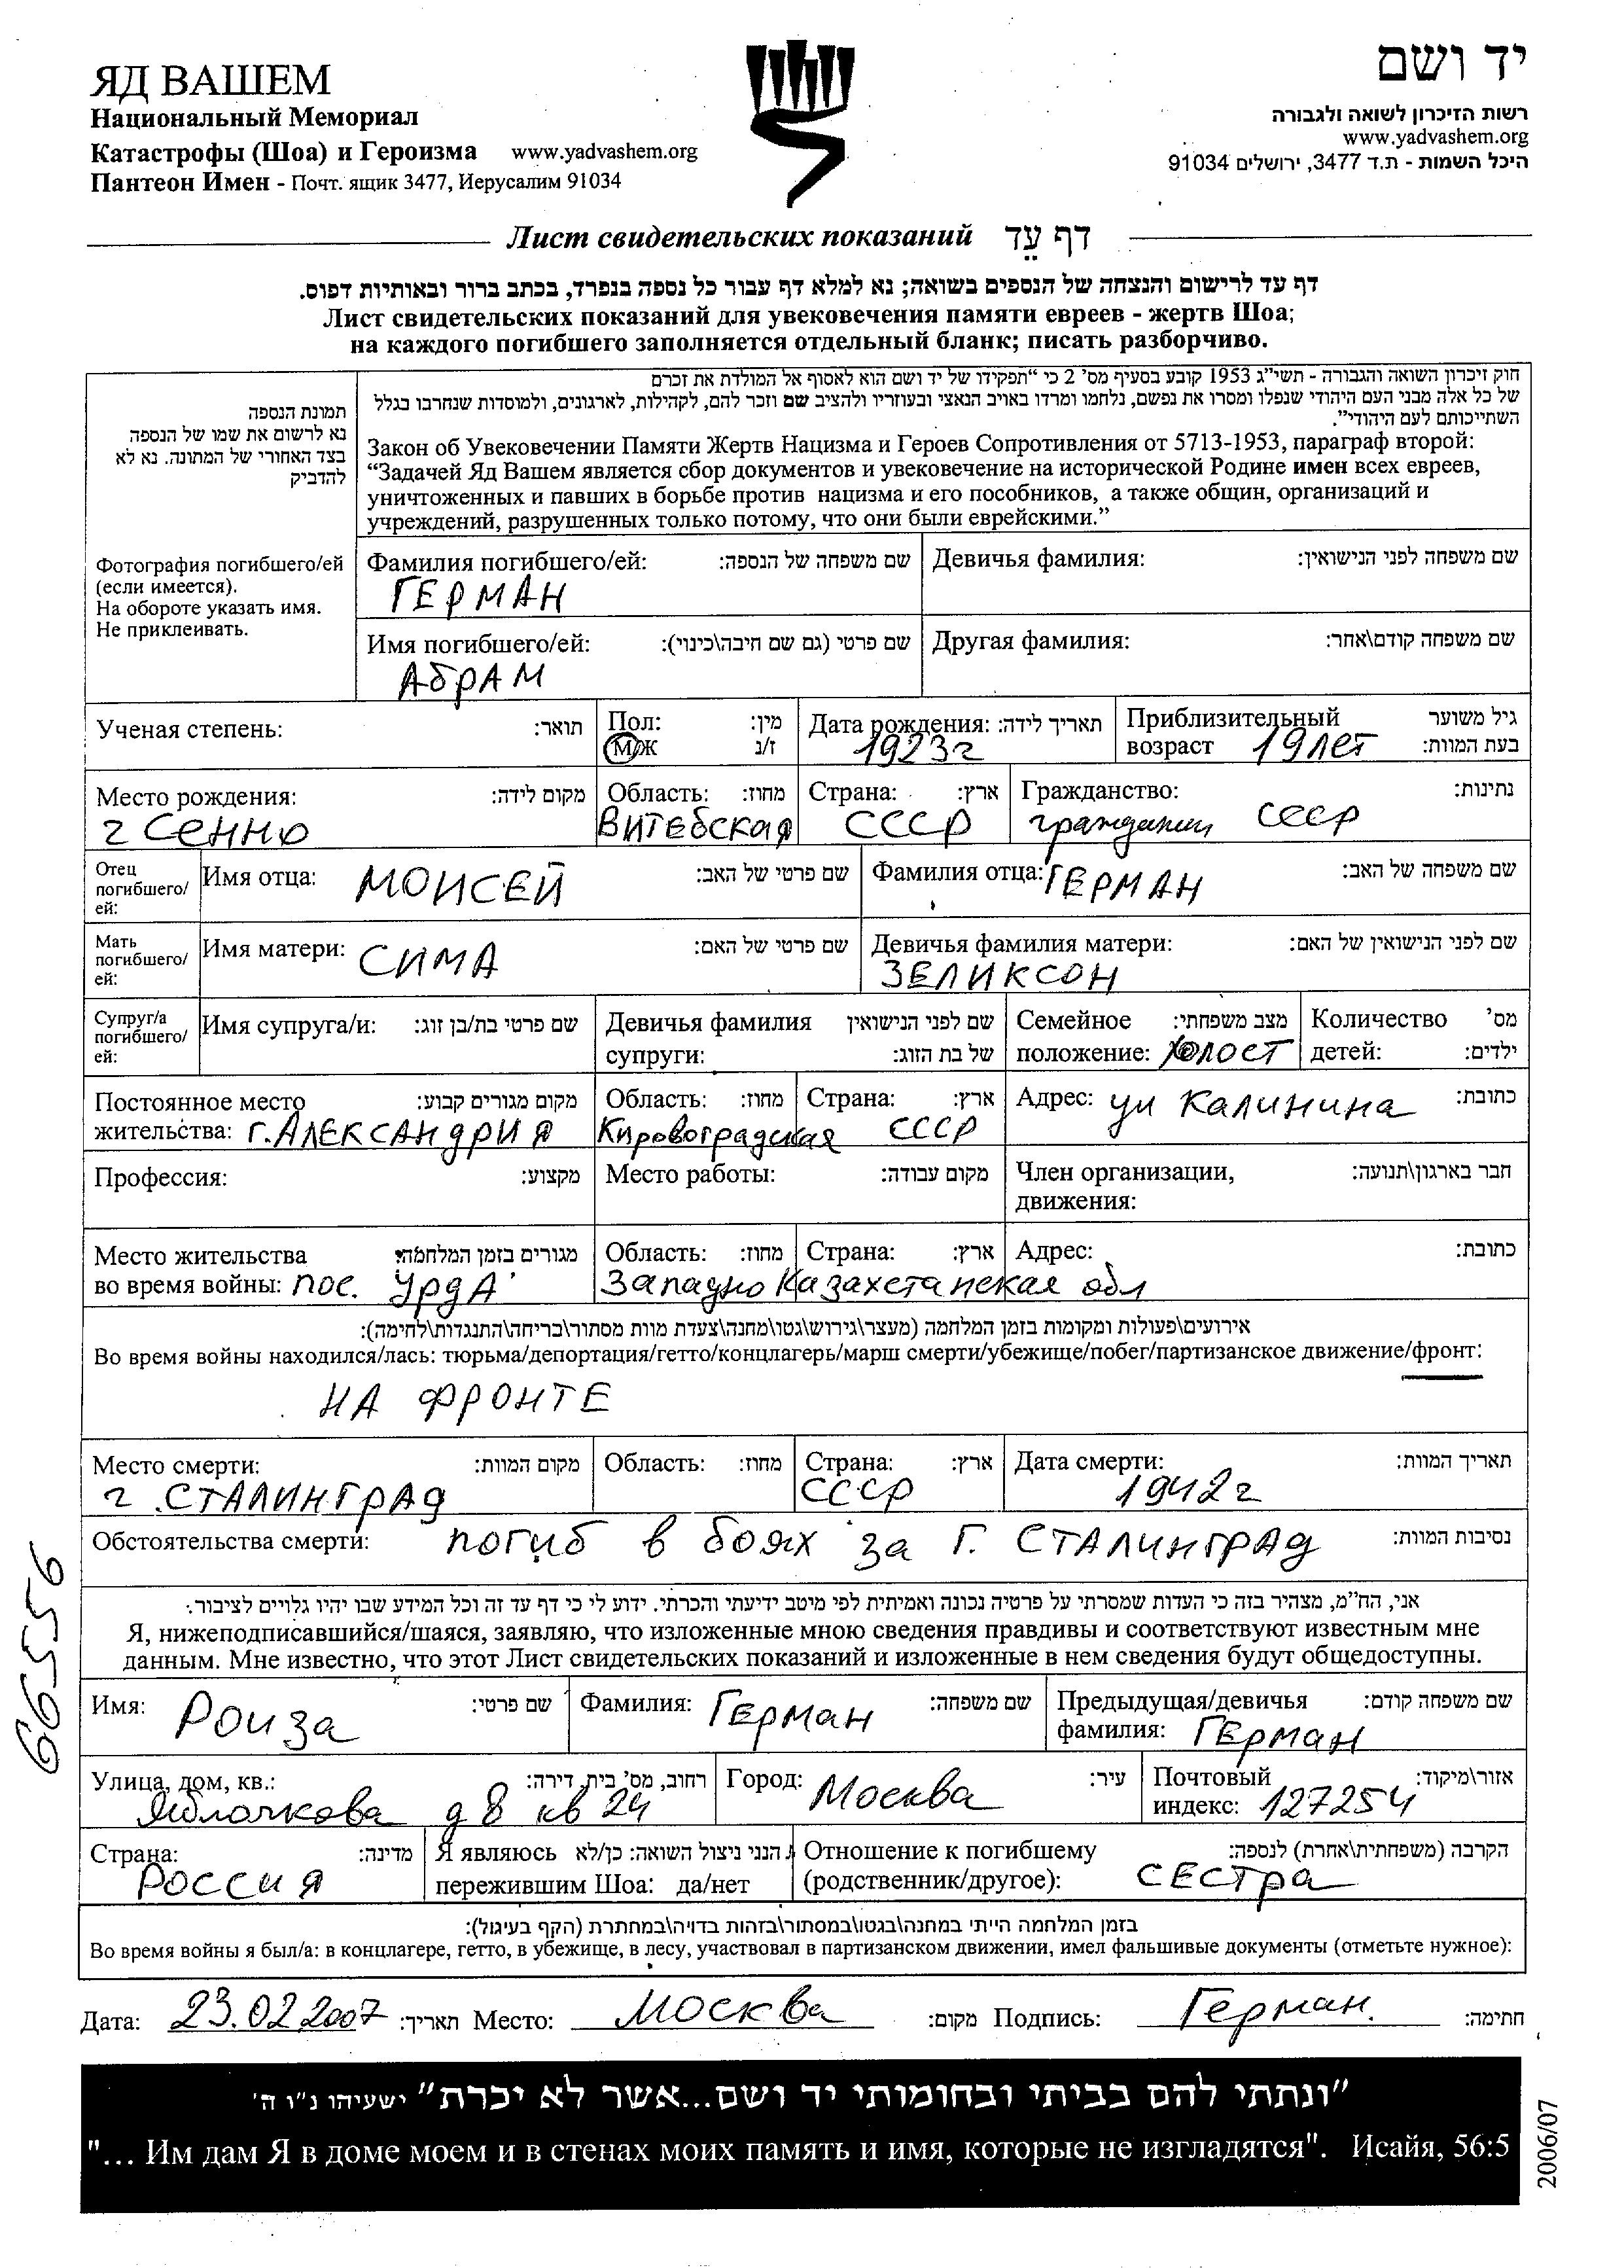 ЯД ВАШЕМ
Национальный Мемориал
Катастрофы (Шоа) и Героизма www.yadvashem.org
Пантеон Имен - Почт. ящик 3477, Иерусалим 91034
יד ושם
רשות הזיכרון לשואה ולגבורה
www.yadvashem.org
היכל השמות - ת.ד 3477, ירושלים 91034
Лист свидетельских показаний דף עֵד
דף עד לרישום והנצחה של הנספים בשואה; נא למלא דף עבור כל נספה בנפרד, בכתב ברור ובאותיות דפוס.
Лист свидетельских показаний для увековечения памяти евреев - жертв Шоа;
на каждого погибшего заполняется отдельный бланк; писать разборчиво.
תמונת הנספה
נא לרשום את שמו של הנספה
בצד האחורי של המתונה. נא לא
להדביק
Фотография погибшего/ей
(если имеется).
На обороте указать имя.
Не приклеивать.
חוק זיכרון השואה והגבורה - תשי"ג 1953 קובע בסעיף מס' 2 כי "תפקידו של יד ושם הוא לאסוף אל המולדת את זכרם
של כל אלה מבני העם היהודי שנפלו ומסרו את נפשם, נלחמו ומרדו באויב הנאצי ובעוזריו ולהציב שם וזכר להם, לקהילות, לארגונים, ולמוסדות שנחרבו בגלל
השתייכותם לעם היהודי".
Закон об Увековечении Памяти Жертв Нацизма и Героев Сопротивления от 5713-1953, параграф второй:
“Задачей Яд Вашем является сбор документов и увековечение на исторической Родине имен всех евреев,
уничтоженных и павших в борьбе против нацизма и его пособников, а также общин, организаций и
учреждений, разрушенных только потому, что они были еврейскими.”
Фамилия погибшего/ей: שם משפחה של הנספה: Девичья фамилия: שם משפחה לפני הנישואין:
ГЕРМАН
Имя погибшего/ей: שם פרטי (גם שם חיבה\כינוי): Другая фамилия: שם משפחה קודם\אחר:
АБРАМ
Ученая степень: תואר: Пол: מין: М/Ж ז/נ Дата рождения: תאריך לידה: 1923г Приблизительный возраст גיל משוער בעת המוות: 19 лет
Место рождения: מקום לידה: Область: מחוז: Страна: ארץ: Гражданство: נתינות:
г Сенно Витебская СССР гражданин СССР
Отец погибшего/ей: Имя отца: МОИСЕЙ שם פרטי של האב: Фамилия отца: ГЕРМАН שם משפחה של האב:
Мать погибшего/ей: Имя матери: СИМА שם פרטי של האם: Девичья фамилия матери: ЗЕЛИКСОН שם לפני הנישואין של האם:
Супруг/а погибшего/ей: Имя супруга/и: שם פרטי בת/בן זוג: Девичья фамилия супруги: שם לפני הנישואין של בת הזוג: Семейное положение: מצב משפחתי: холост Количество детей: מס' ילדים:
Постоянное место жительства: מקום מגורים קבוע: г. Александрия Область: מחוז: Кировоградская Страна: ארץ: СССР Адрес: ул Калинина כתובת:
Профессия: מקצוע: Место работы: מקום עבודה: Член организации, движения: חבר בארגון\תנועה:
Место жительства во время войны: מגורים בזמן המלחמה: пос. Урда Область: מחוז: Страна: ארץ: Адрес: כתובת:
Западно Казахстанская обл
אירועים\פעולות ומקומות בזמן המלחמה (מעצר\גירוש\גטו\מחנה\צעדת מוות מסתור\בריחה\התנגדות\לחימה):
Во время войны находился/лась: тюрьма/депортация/гетто/концлагерь/марш смерти/убежище/побег/партизанское движение/фронт:
НА ФРОНТЕ
Место смерти: מקום המוות: Область: מחוז: Страна: ארץ: Дата смерти: תאריך המוות:
г. СТАЛИНГРАД СССР 1942г
Обстоятельства смерти: погиб в боях за г. СТАЛИНГРАД נסיבות המוות:
אני, הח"מ, מצהיר בזה כי העדות שמסרתי על פרטיה נכונה ואמיתית לפי מיטב ידיעתי והכרתי. ידוע לי כי דף עד זה וכל המידע שבו יהיו גלויים לציבור.
Я, нижеподписавшийся/шаяся, заявляю, что изложенные мною сведения правдивы и соответствуют известным мне
данным. Мне известно, что этот Лист свидетельских показаний и изложенные в нем сведения будут общедоступны.
Имя: Роиза שם פרטי: Фамилия: Герман שם משפחה: Предыдущая/девичья фамилия: Герман שם משפחה קודם:
Улица, дом, кв.: רחוב, מס' בית, דירה: Город: Москва עיר: Почтовый индекс: 127254 אזור\מיקוד:
Яблочкова д 8 кв 24
Страна: מדינה: Россия Я являюсь пережившим Шоа: да/нет הנני ניצול השואה: כן/לא Отношение к погибшему (родственник/другое): הקרבה (משפחתית\אחרת) לנספה: СЕСТРА
בזמן המלחמה הייתי במחנה\בגטו\במסתור\בזהות בדויה\במחתרת (הקף בעיגול):
Во время войны я был/а: в концлагере, гетто, в убежище, в лесу, участвовал в партизанском движении, имел фальшивые документы (отметьте нужное):
Дата: 23.02.2007 תאריך: Место: Москва מקום: Подпись: Герман. חתימה:
"ונתתי להם בביתי ובחומותי יד ושם...אשר לא יכרת" ישעיהו נ"ו ה'
"... Им дам Я в доме моем и в стенах моих память и имя, которые не изгладятся". Исайя, 56:5
66556
2006/07